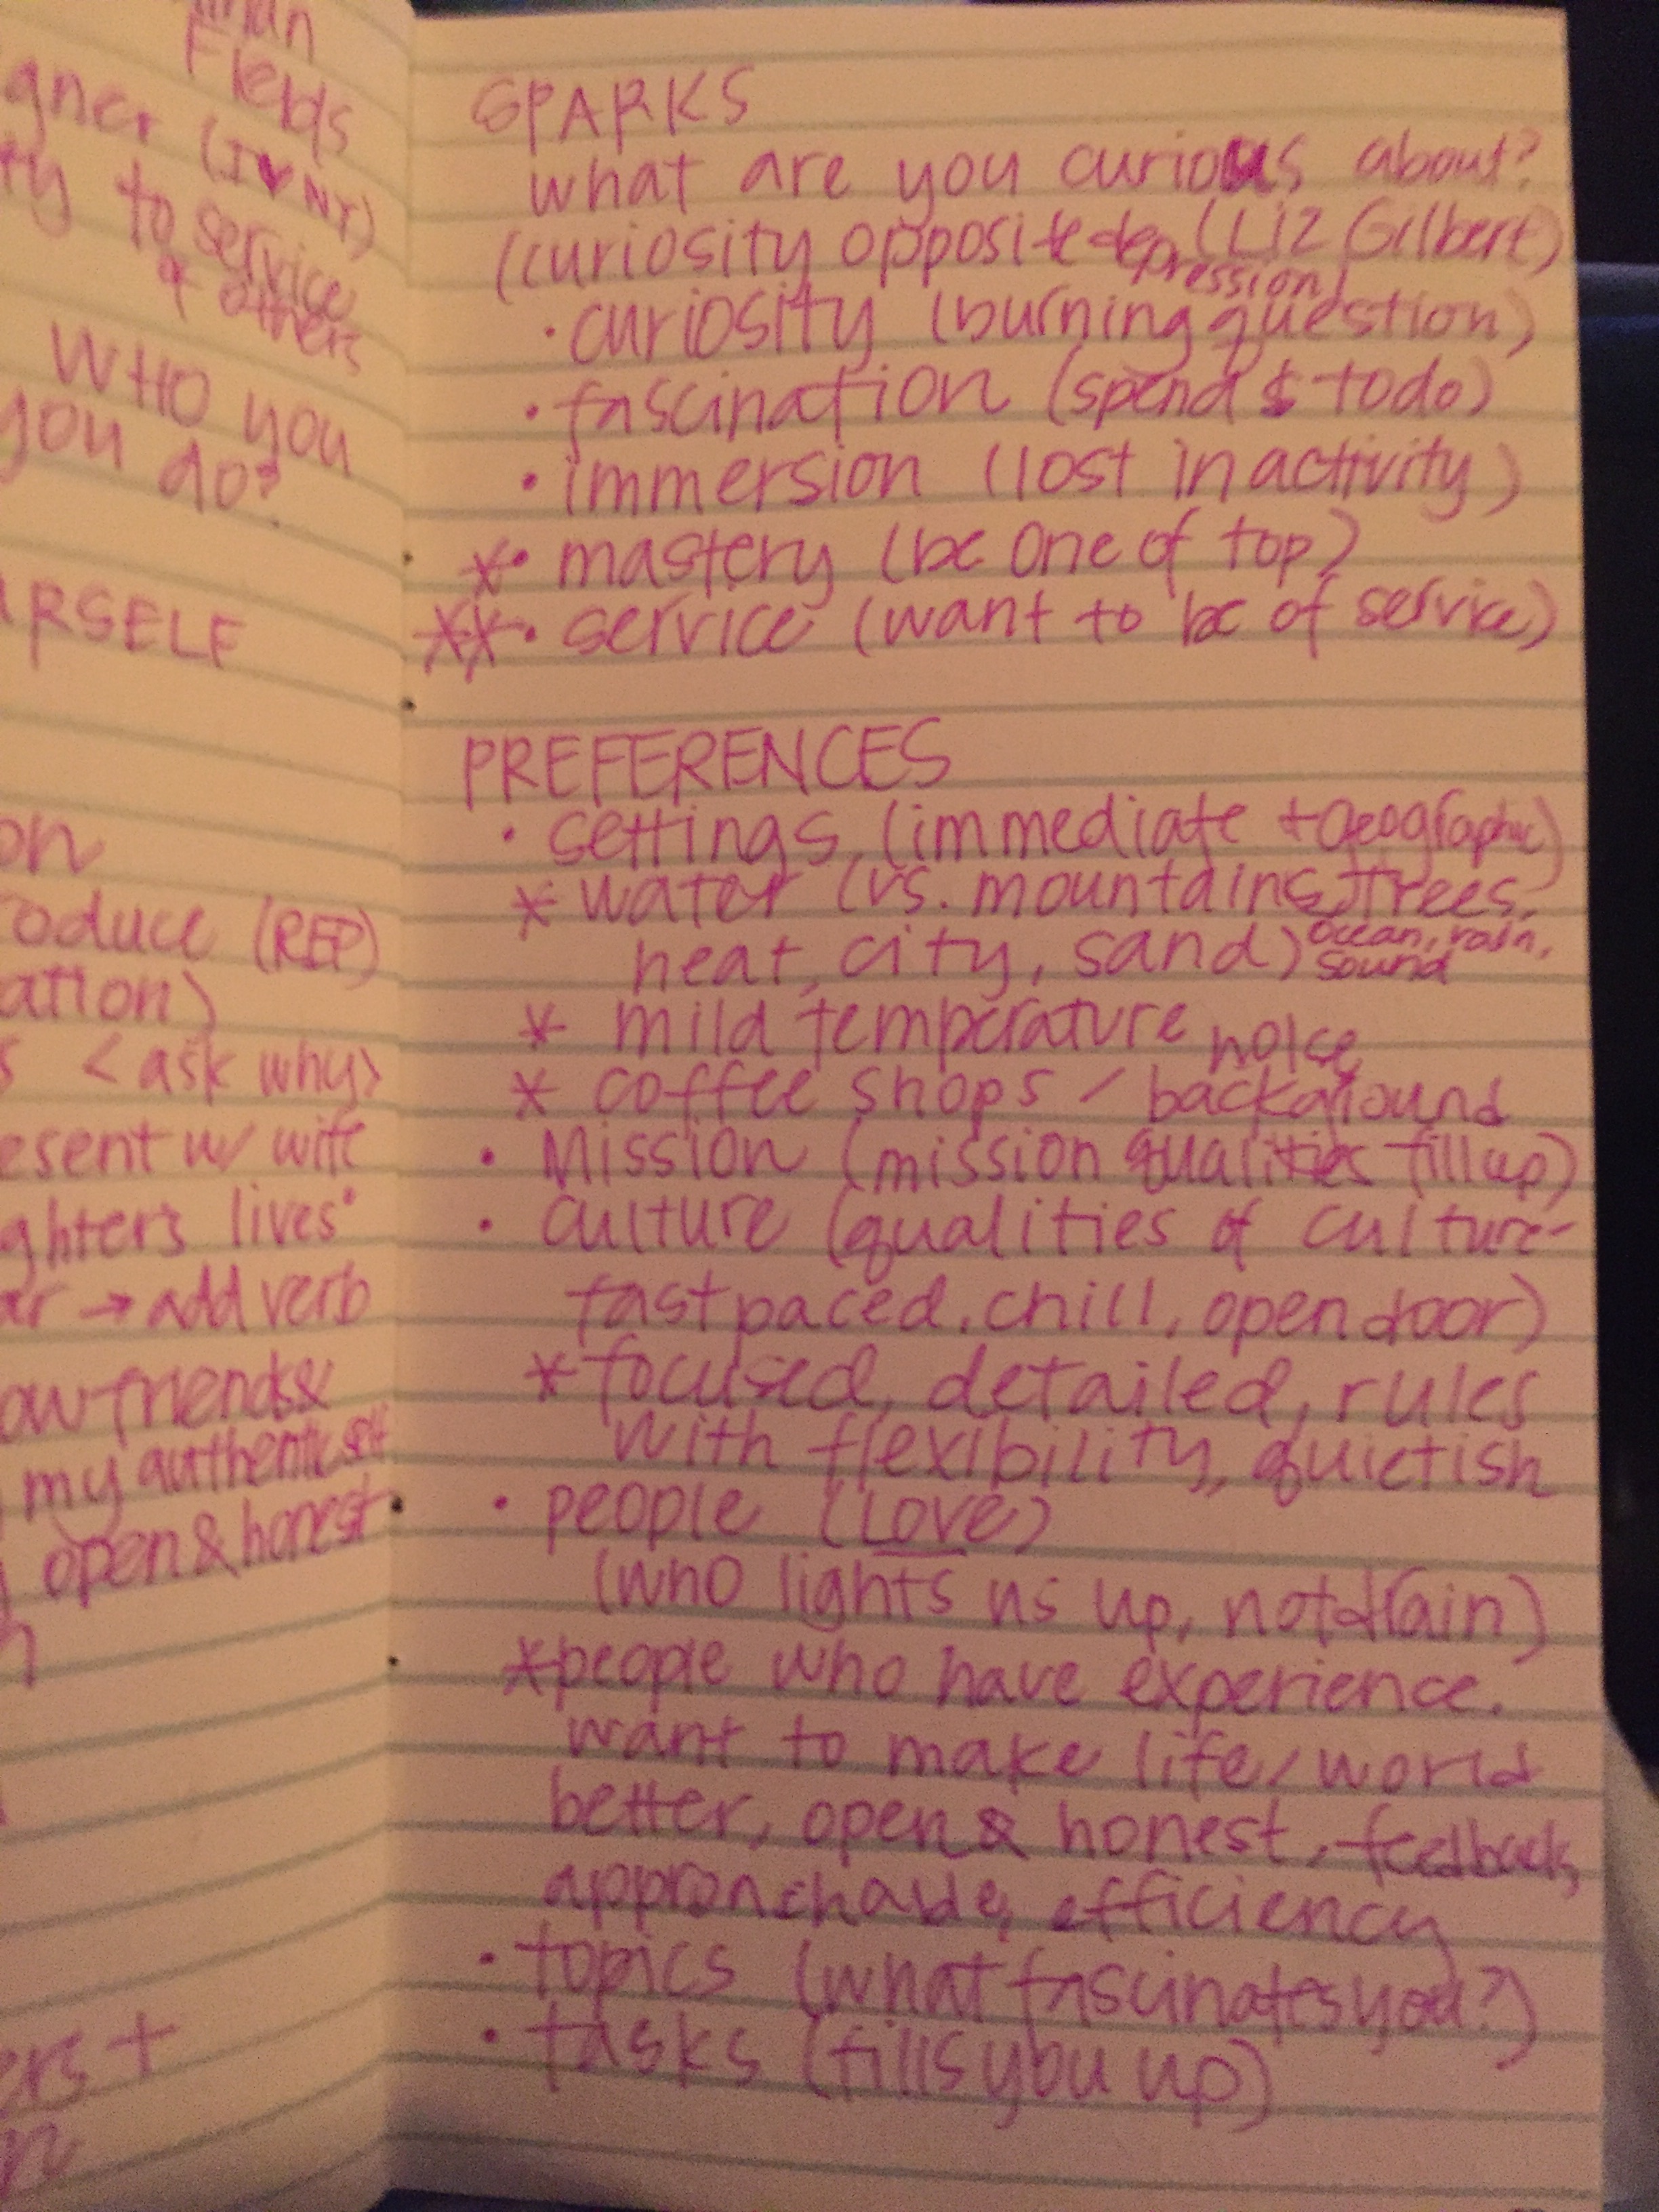 Fields
(I ♥ NY)
to service
& others
WHO you
you do?
on
(REP)
<ask why>
w/ wife
lives"
→ add verb
friends &
my authentic self
open & honest
SPARKS
what are you curious about?
(curiosity opposite depression) (Liz Gilbert)
• curiosity (burning question)
• fascination (spend $ to do)
• immersion (lost in activity)
*• mastery (be one of top)
**• service (want to be of service)
PREFERENCES
• settings (immediate + geographic)
* water (vs. mountains, trees,
heat, city, sand) ocean, rain,
sound
* mild temperature
* coffee shops / background noise
• Mission (mission qualities fill up)
• culture (qualities of culture-
fast paced, chill, open door)
* focused, detailed, rules
with flexibility, quietish
• people (LOVE)
(who lights us up, not drain)
* people who have experience.
want to make life/world
better, open & honest, feedback,
approachable, efficiency
• topics (what fascinates you?)
• tasks (fills you up)